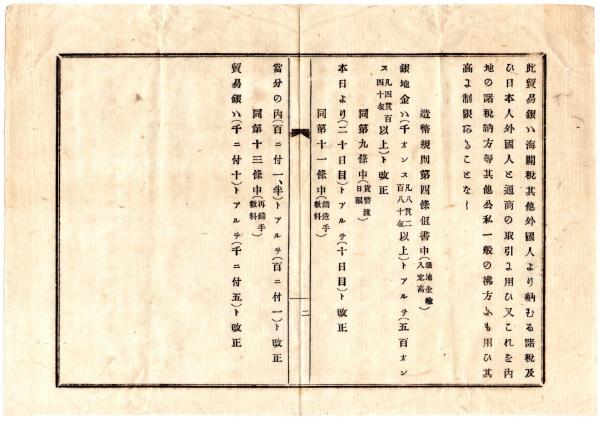 此貿易銀ハ海關税其他外國人より納むる諸税及
ひ日本人外國人と通商の取引に用ひ又これを内
地の諸税納方等其他公私一般の拂方にも用ひ其
高に制限あることなし
造幣規則第四條但書中(銀地金輸入定高)
銀地金ハ(千オンス凡八貫二百八十匁以上)トアルヲ(五百オン
ス凡四貫百四十匁以上)ト改正
同第九條中(貨幣渡日限)
本日より(二十日目)トアルヲ(十日目)ト改正
同第十一條中(鑄造手數料)
二
當分の内(百ニ付一、半)トアルヲ(百ニ付一)ト改正
同第十三條中(再鑄手數料)
貿易銀ハ(千ニ付十)トアルヲ(千ニ付五)ト改正